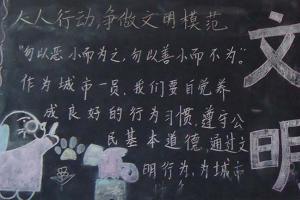 人人行动,争做文明模范
"勿以恶小而为之,勿以善小而不为"。
作为城市一员,我们要自觉养
成良好的行为习惯,遵守公
民基本道德,通过文
明行为,为城市
文明